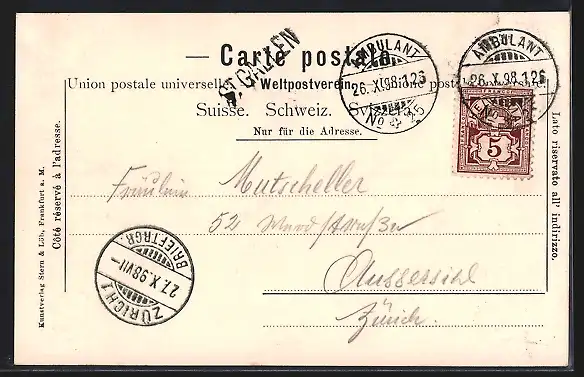 — Carte postale. —
Union postale universelle. — Weltpostverein. — Unione postale universale.
Suisse. Schweiz. Svizzera.
Nur für die Adresse.
Côté réservé à l'adresse.
Kunstverlag Stern & Löb, Frankfurt a. M.
Lato riservato all' indirizzo.
ST. GALLEN
AMBULANT
26. X. 98. 126
No
AMBULANT
26. X. 98. 126
5
Fräulein Mutscheller
52
Aussersihl
Zürich.
ZÜRICH 1
27. X. 98. VII —
BRIEFTRG.